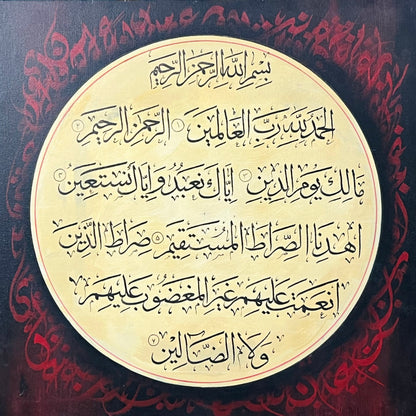 بسم الله الرحمن الرحيم
الحمد لله رب العالمين ١ الرحمن الرحيم ٢
مالك يوم الدين ٣ إياك نعبد وإياك نستعين ٤
اهدنا الصراط المستقيم ٥ صراط الذين
أنعمت عليهم غير المغضوب عليهم
ولا الضالين ٧